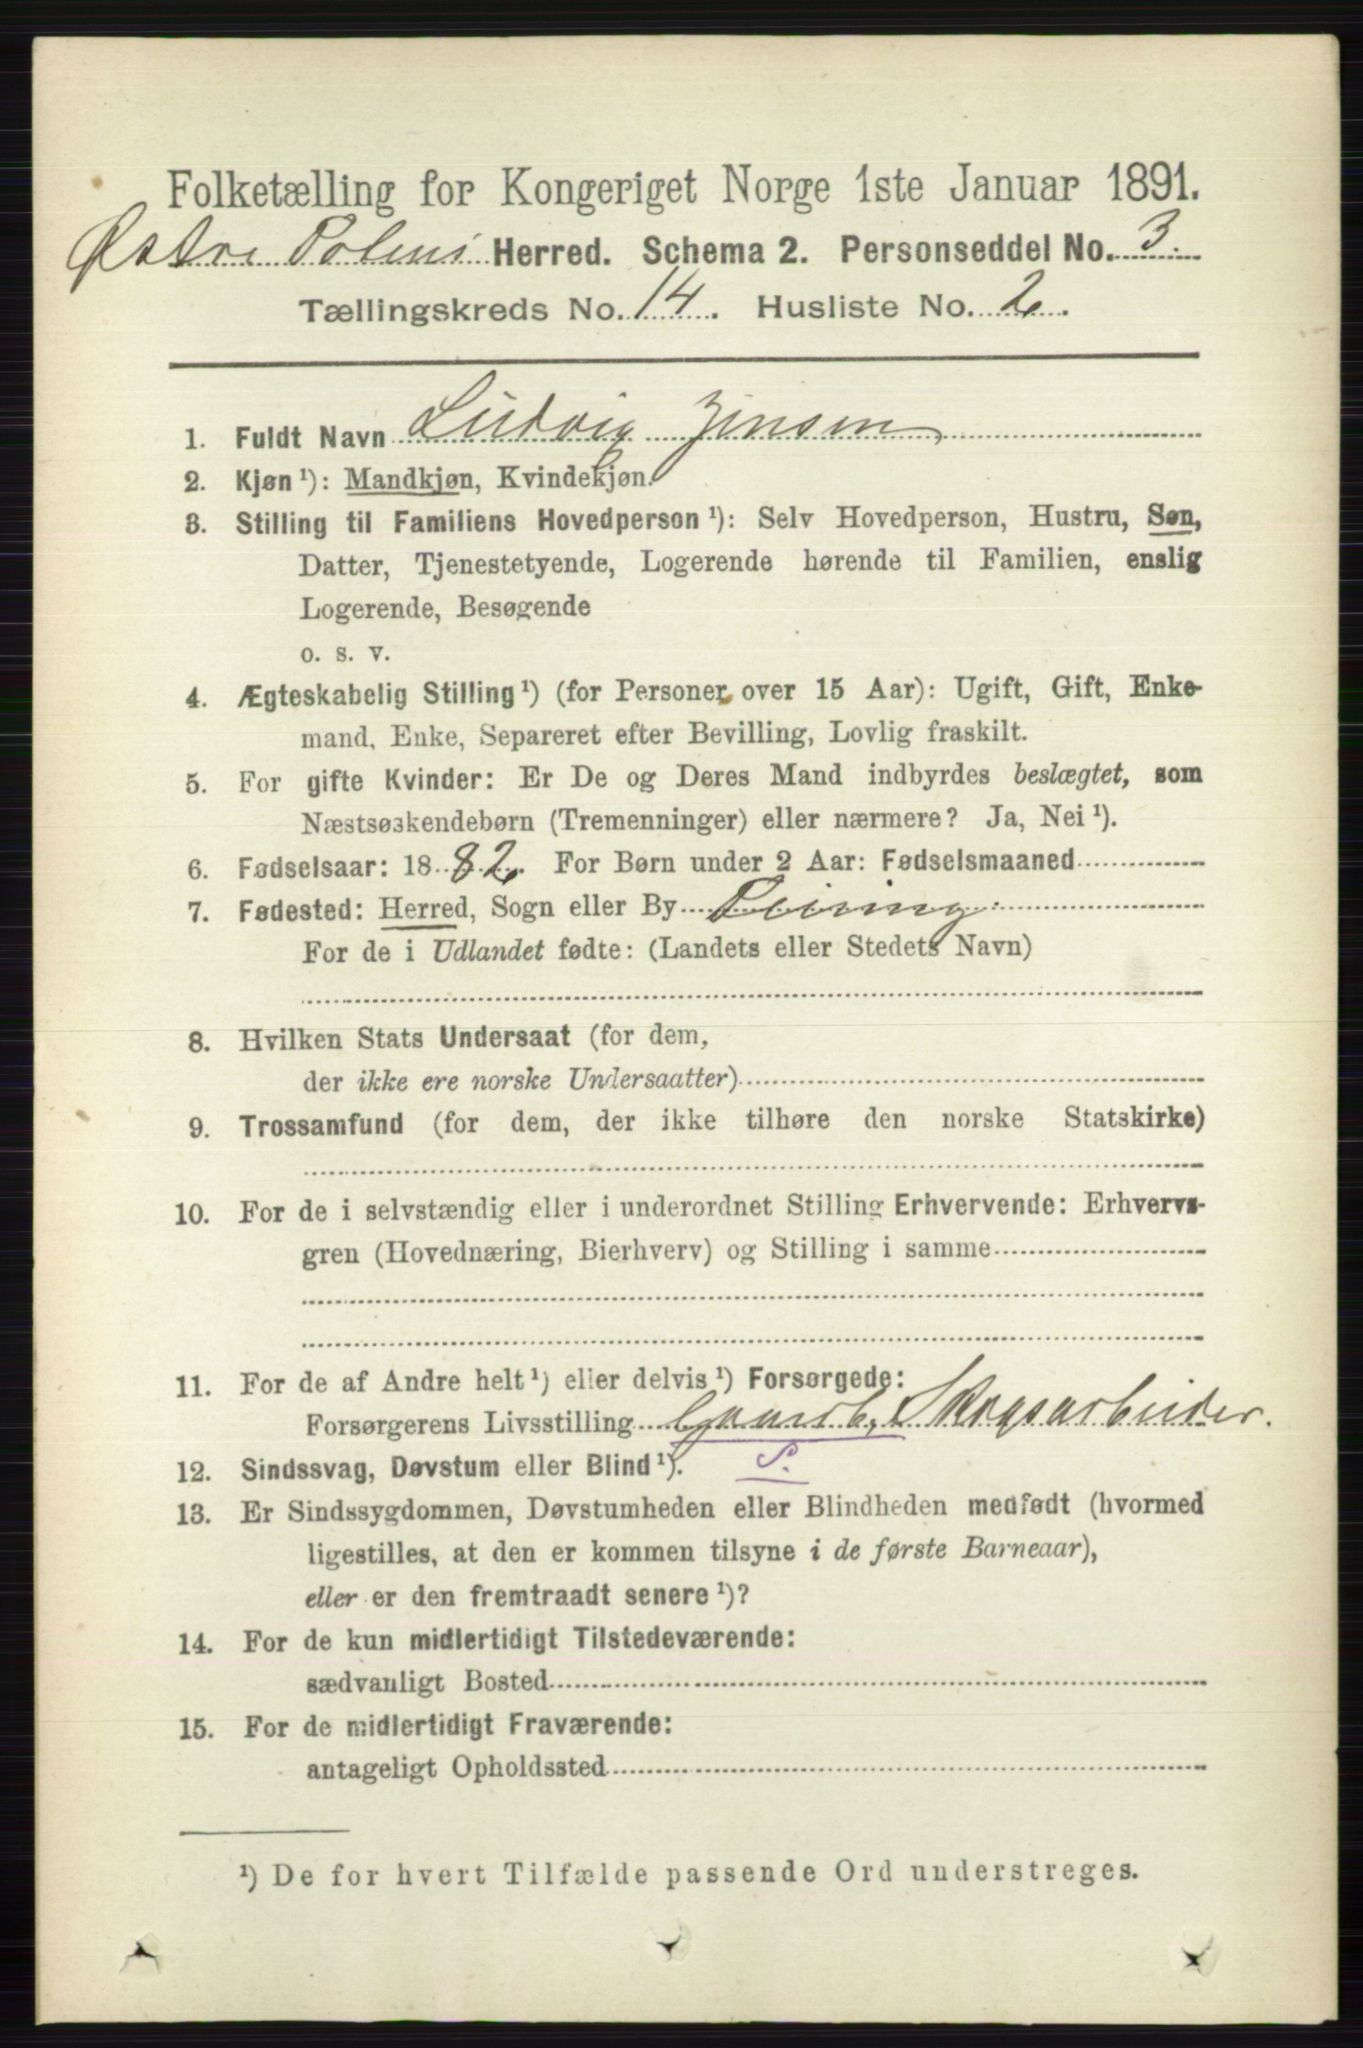 Folketælling for Kongeriget Norge 1ste Januar 1891.
Østre Tolens Herred. Schema 2. Personseddel No. 3.
Tællingskreds No. 14. Husliste No. 2.
1. Fuldt Navn Ludvig Jensen
2. Kjøn ¹): Mandkjøn, Kvindekjøn.
3. Stilling til Familiens Hovedperson ¹): Selv Hovedperson, Hustru, Søn,
Datter, Tjenestetyende, Logerende hørende til Familien, enslig
Logerende, Besøgende
o. s. v.
4. Ægteskabelig Stilling ¹) (for Personer over 15 Aar): Ugift, Gift, Enke-
mand, Enke, Separeret efter Bevilling, Lovlig fraskilt.
5. For gifte Kvinder: Er De og Deres Mand indbyrdes beslægtet, som
Næstsøskendebørn (Tremenninger) eller nærmere? Ja, Nei ¹).
6. Fødselsaar: 1882. For Børn under 2 Aar: Fødselsmaaned
7. Fødested: Herred, Sogn eller By
For de i Udlandet fødte: (Landets eller Stedets Navn)
8. Hvilken Stats Undersaat (for dem,
der ikke ere norske Undersaatter)
9. Trossamfund (for dem, der ikke tilhøre den norske Statskirke)
10. For de i selvstændig eller i underordnet Stilling Erhvervende: Erhvervs-
gren (Hovednæring, Bierhverv) og Stilling i samme
11. For de af Andre helt ¹) eller delvis ¹) Forsørgede:
Forsørgerens Livsstilling Gaardb, Skogsarbeider.
12. Sindssvag, Døvstum eller Blind ¹). S.
13. Er Sindssygdommen, Døvstumheden eller Blindheden medfødt (hvormed
ligestilles, at den er kommen tilsyne i de første Barneaar),
eller er den fremtraadt senere ¹)?
14. For de kun midlertidigt Tilstedeværende:
sædvanligt Bosted
15. For de midlertidigt Fraværende:
antageligt Opholdssted
¹) De for hvert Tilfælde passende Ord understreges.